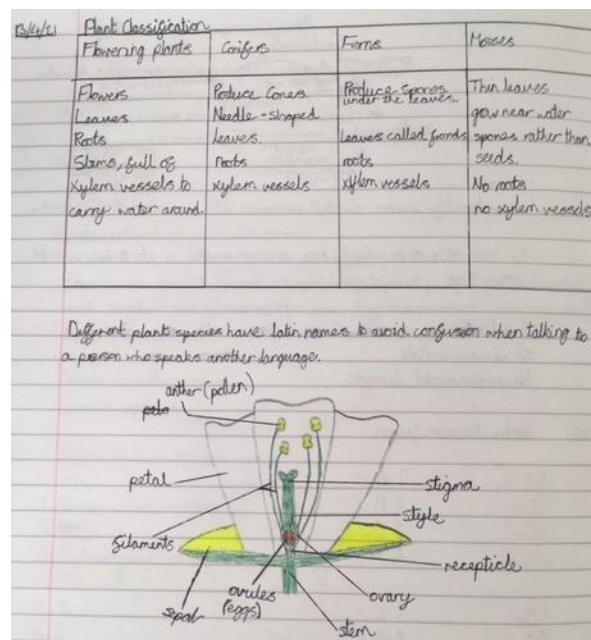 13/4/21 Plant Classification
Flowering plants
Flowers
Leaves
Roots
Stems, full of
xylem vessels to
carry water around.
Conifers
Produce Cones
Needle-shaped
leaves.
roots
xylem vessels
Ferns
Produce spores
under the leaves.
Leaves called fronds
roots
xylem vessels
Mosses
Thin leaves
grow near water
spores rather than
seeds.
No roots
no xylem vessels
Different plant species have latin names to avoid confusion when talking to
a person who speaks another language.
anther (pollen)
petal
stigma
style
filaments
recepticle
ovules
(eggs)
ovary
sepal
stem